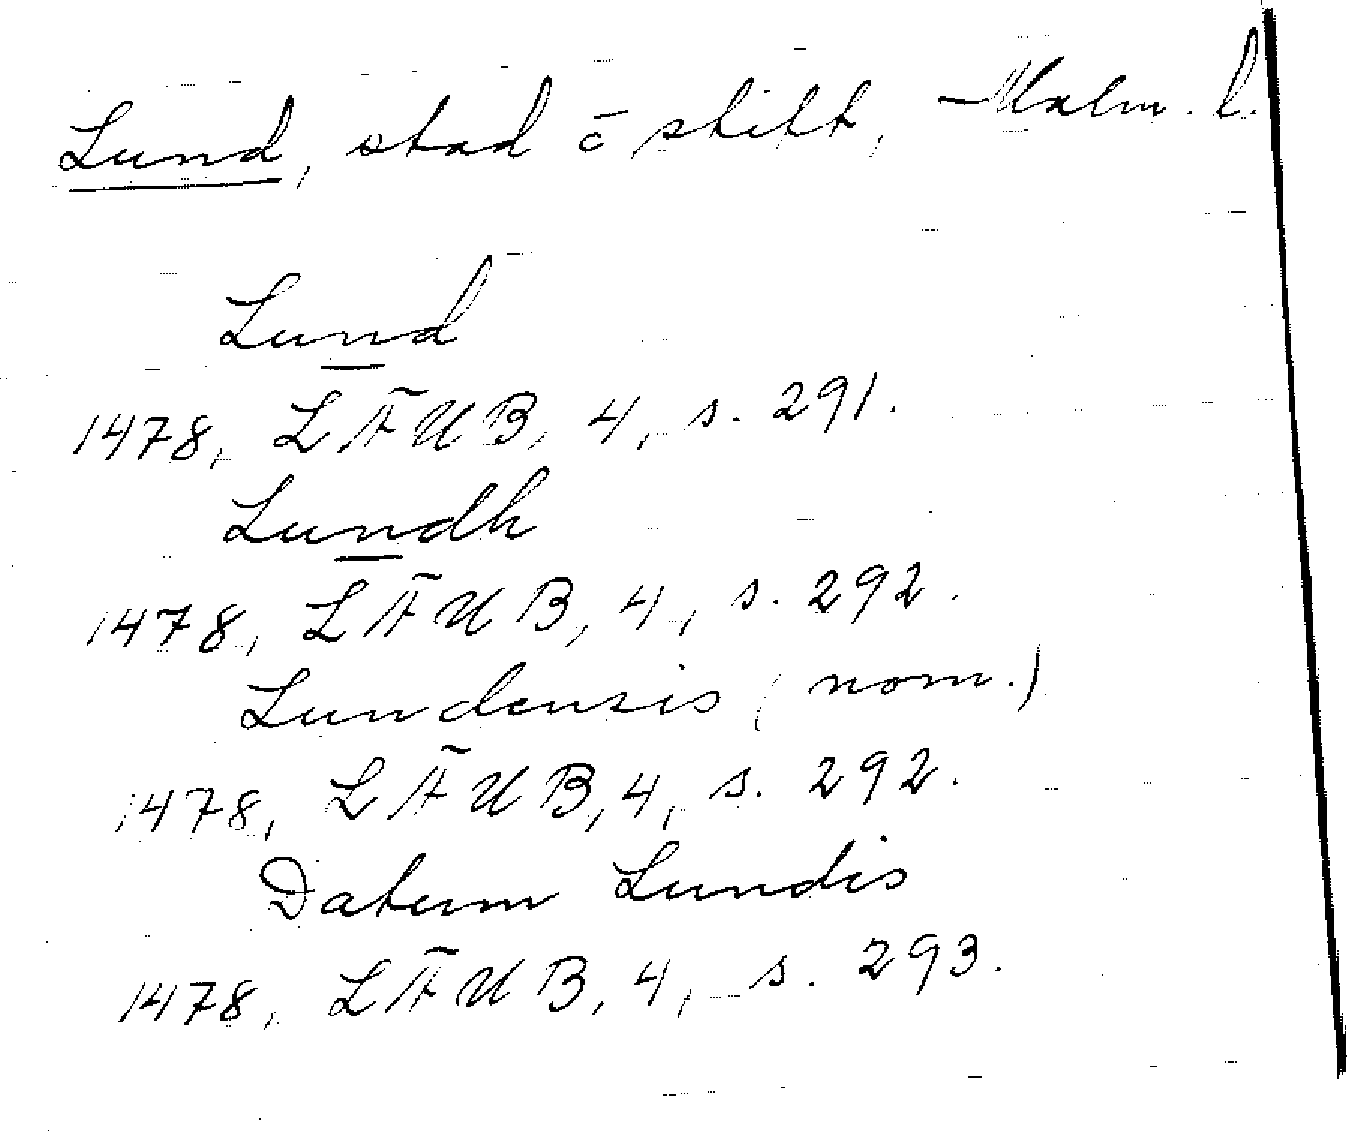 Lund, stad ō stift, Malm. l.
Lund
1478, LÄUB, 4, s. 291.
Lundh
1478, LÄUB, 4, s. 292.
Lundensis (nom.)
1478, LÄUB, 4, s. 292.
Datum Lundis
1478, LÄUB, 4, s. 293.